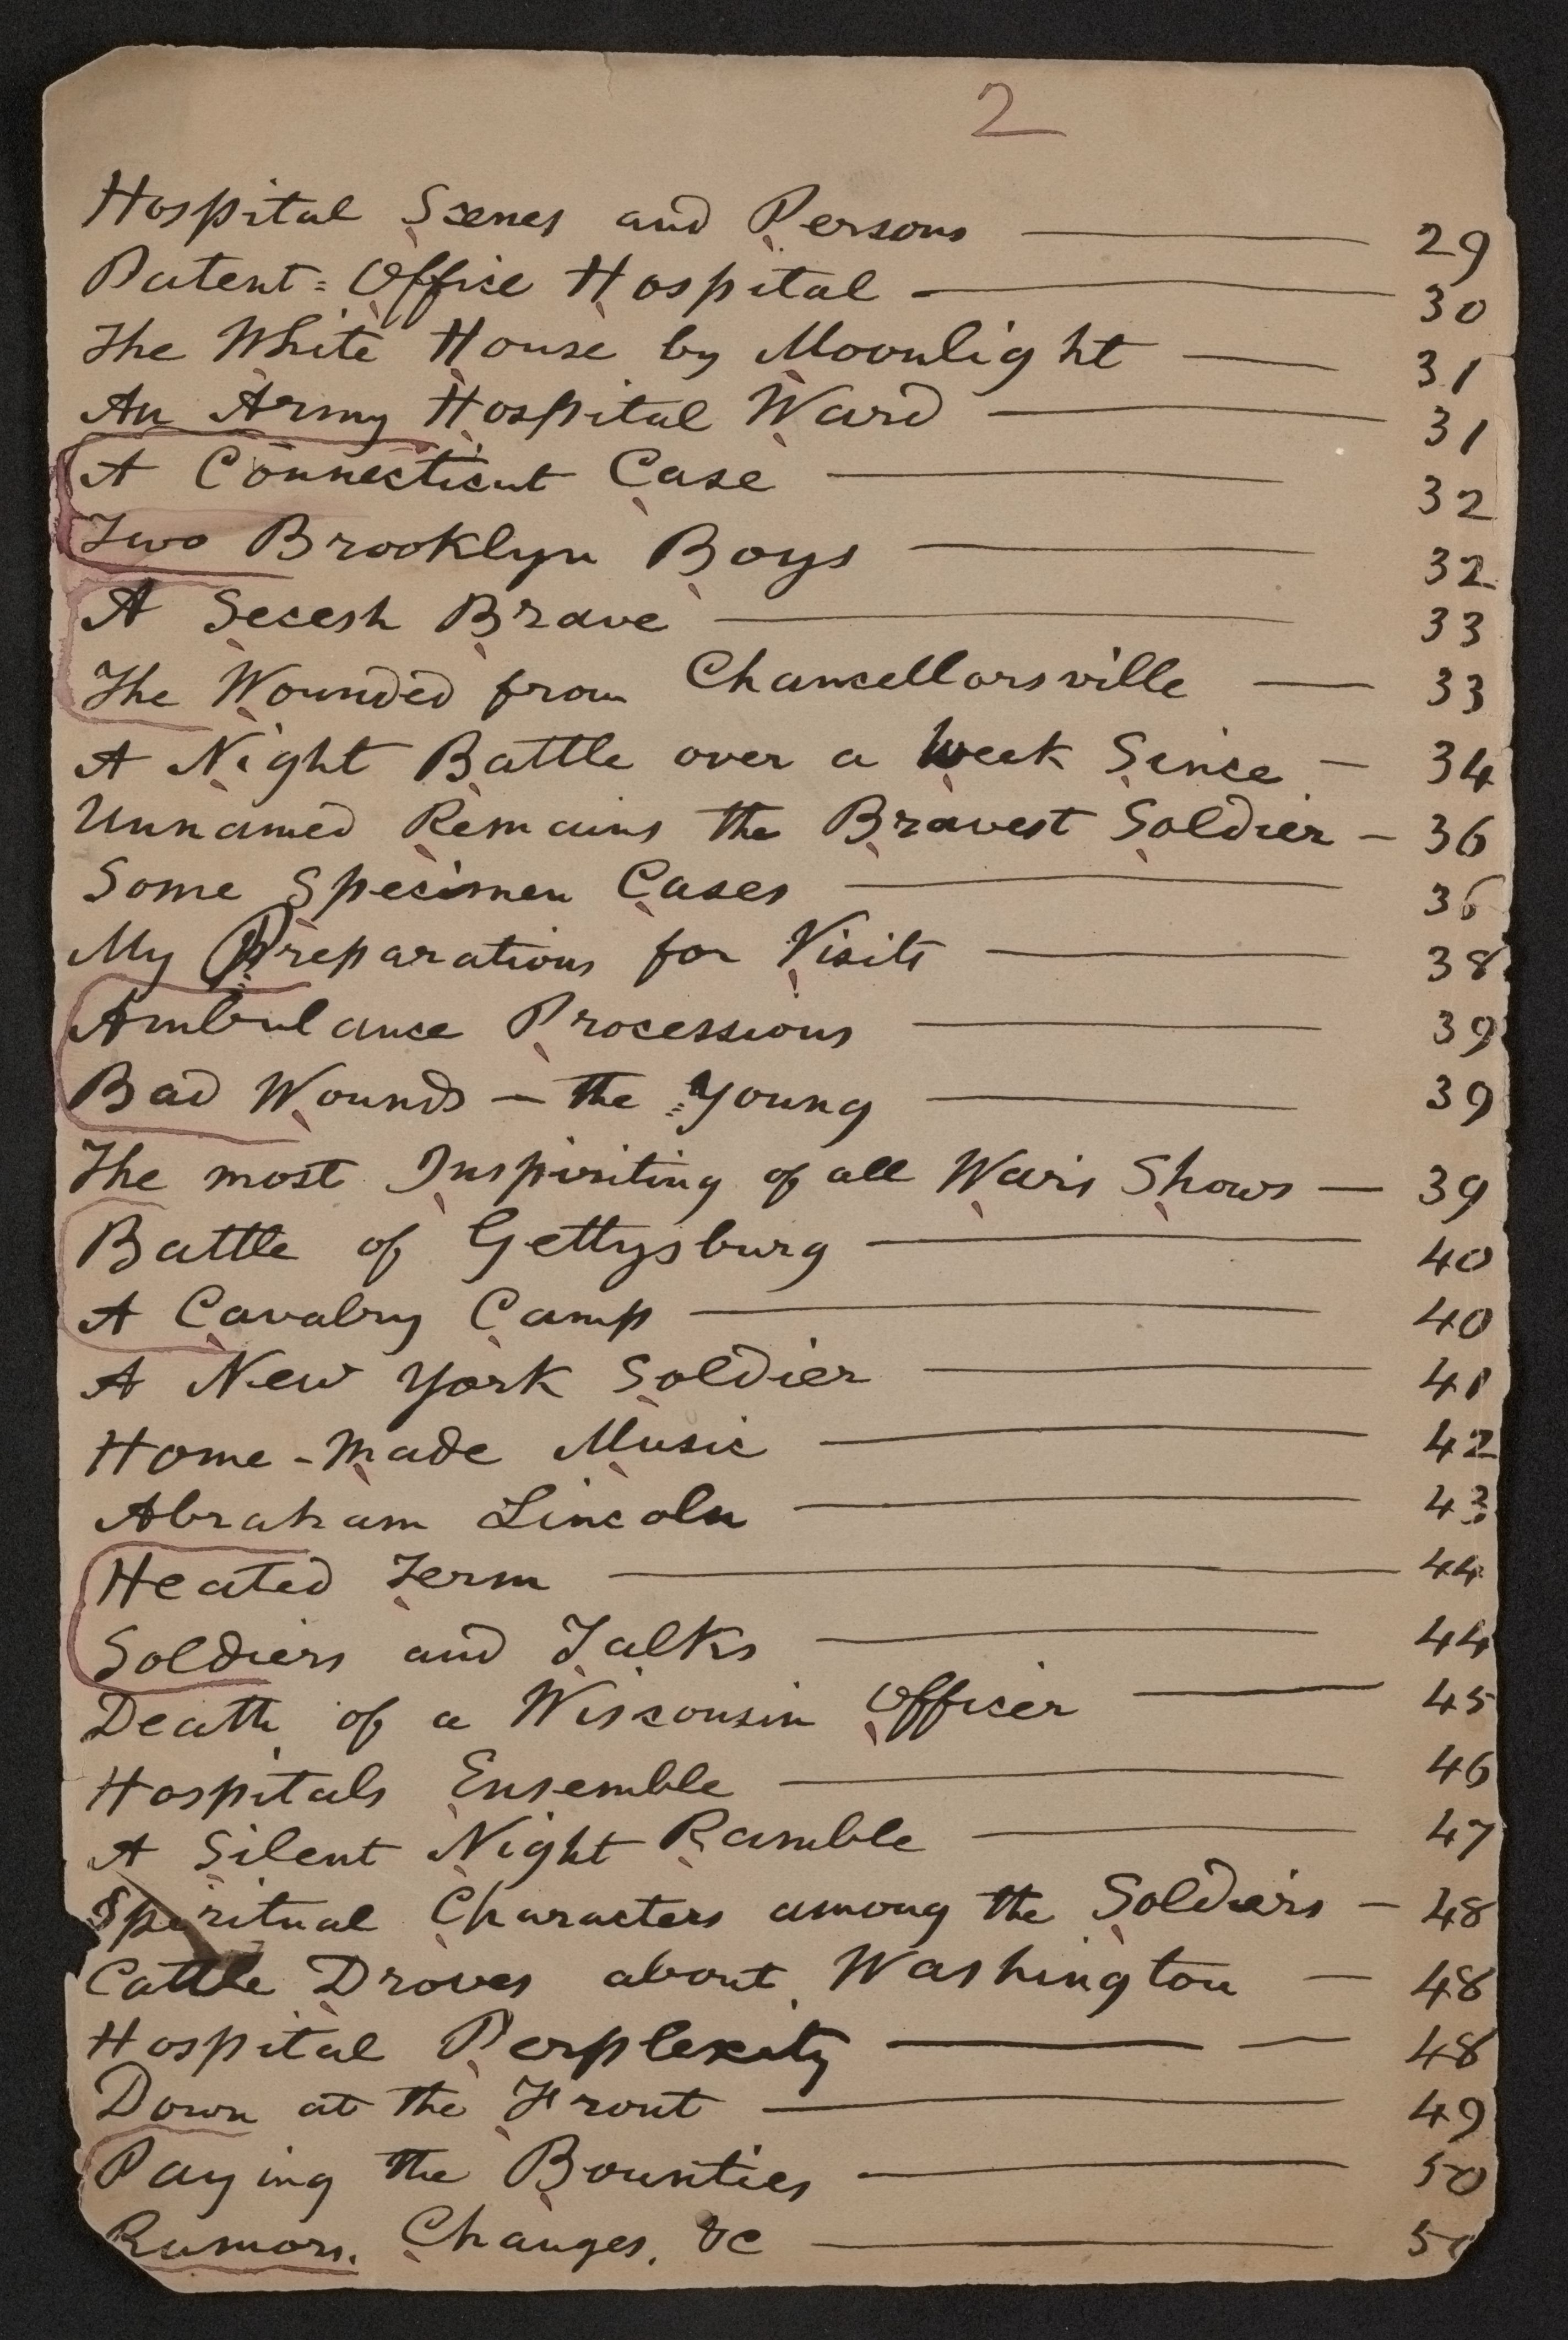 2
Hospital Scenes and Persons — 29
Patent=Office Hospital — 30
The White House by Moonlight — 31
An Army Hospital Ward — 31
A Connecticut Case — 32
Two Brooklyn Boys — 32
A Secesh Brave — 33
The Wounded from Chancellorsville — 33
A Night Battle over a Week Since — 34
Unnamed Remains the Bravest Soldier — 36
Some Specimen Cases — 36
My Preparations for Visits — 38
Ambulance Processions — 39
Bad Wounds — the Young — 39
The most Inspiriting of all War's Shows — 39
Battle of Gettysburg — 40
A Cavalry Camp — 40
A New York Soldier — 41
Home-Made Music — 42
Abraham Lincoln — 43
Heated Term — 44
Soldiers and Talks — 44
Death of a Wisconsin Officer — 45
Hospitals Ensemble — 46
A Silent Night Ramble — 47
Spiritual Characters among the Soldiers — 48
Cattle Droves about Washington — 48
Hospital Perplexity — — 48
Down at the Front — 49
Paying the Bounties — 50
Rumors, Changes, &c —